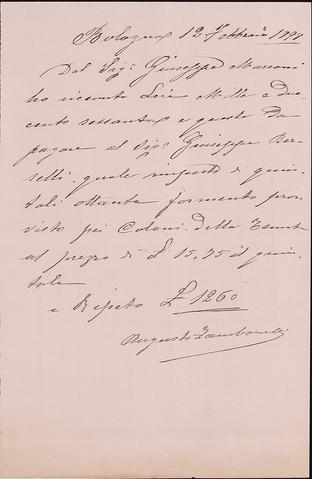 Bologna 12 Febbraio 1897
Dal Sig. Giuseppe Marconi
ho ricevuto Lire Mille e due
cento sessanta e questo da
pagare al Sig. Giuseppe Ber
selli, quale importo di quin
tali ottanta formento prov
visto pei Coloni della Tenuta
al prezzo di £ 15,75 il quin
tale
e Ripeto £ 1260
Augusto Zamborelli